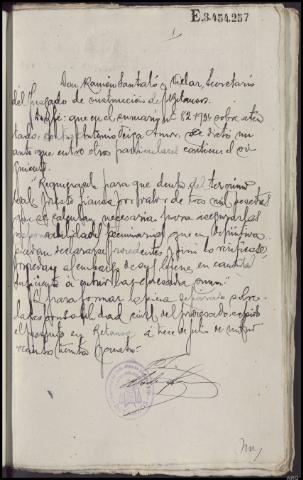 E.3.454.257
1
Don Ramón Santaló y Villar, Secretario
del Juzgado de instrucción de Betanzos.
Doy fé: que en el sumario nº 82-1934 sobre aten
tado, contra Antonio Teiga Amor, se dictó un
auto que entre otros particulares contiene el si
guiente:
"Requierasele para que dentro del termino
legal preste fianza por valor de tres mil pesetas
que se calculan necesarias para asegurar las
responsabilidades pecuniarias que en definitiva
puedan declararse procedentes y si no lo verificase,
procedase al embargo de sus bienes, en cantidad
suficiente á cubrir la expresada suma"
Y para formar la pieza separada sobre
la responsabilidad civil del procesado expido
el presente en Betanzos á trece de julio de mil no
vecientos treinta y cuatro.